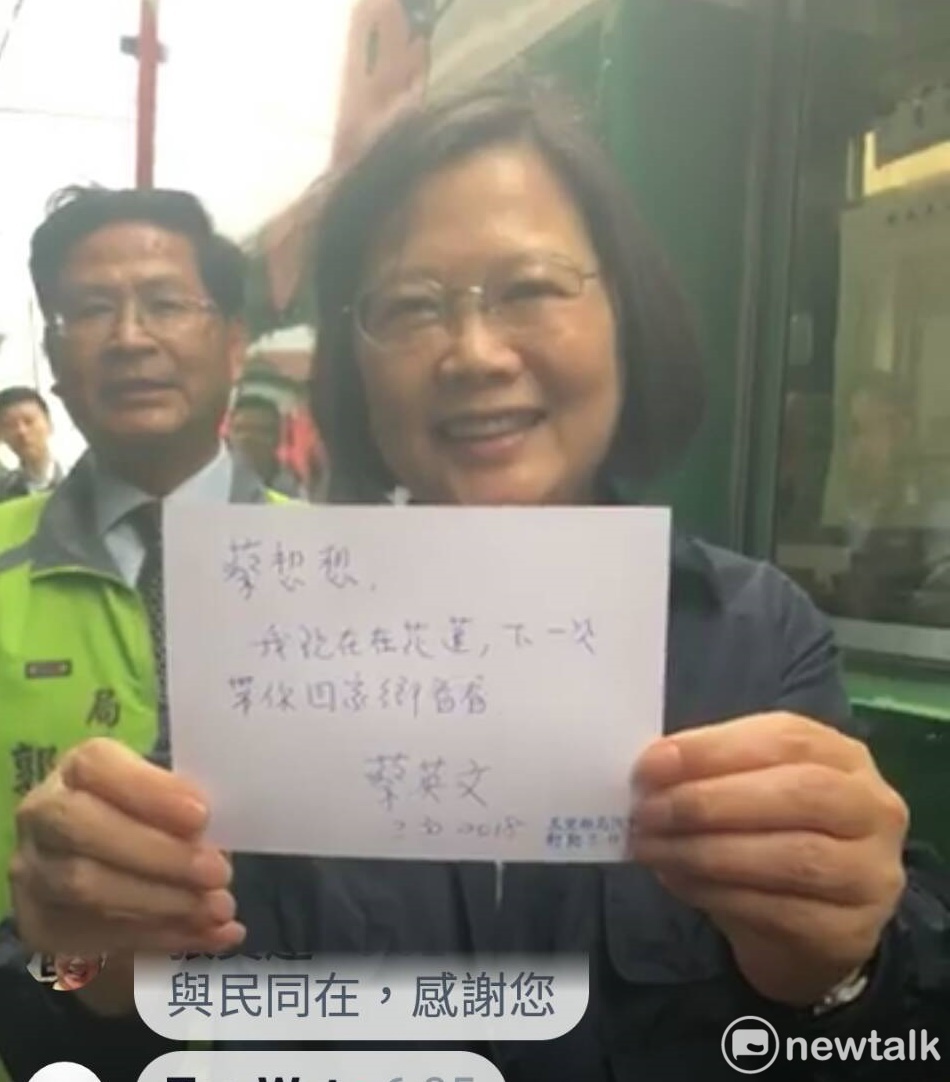 蔡想想,
我現在在花蓮,下一次
帶你回家鄉看看
蔡英文
2018
局
郭
與民同在，感謝您
newtalk